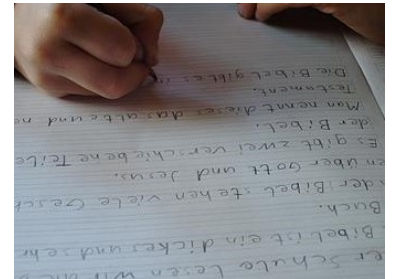 er Schule lesen wir die
Bibel ist ein dickes und sehr
Buch.
der Bibel stehen viele Gesch
en über Gott und Jesus.
Es gibt zwei verschiebene Teile
der Bibel.
Man nennt dieses das alte und ne
Testament.
Die Bibel gibt es i